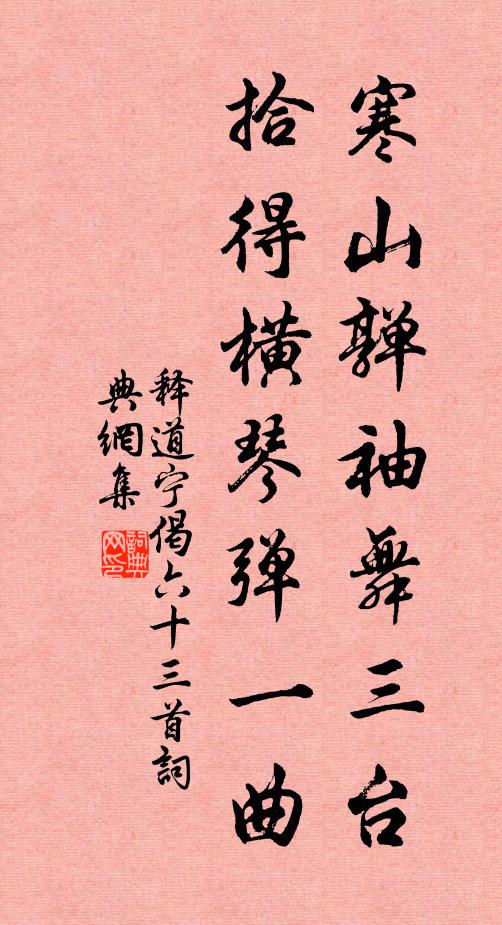 寒山亸袖舞三台
拾得横琴弹一曲
释道宁偈六十三首詞
典網集
詞典
网印